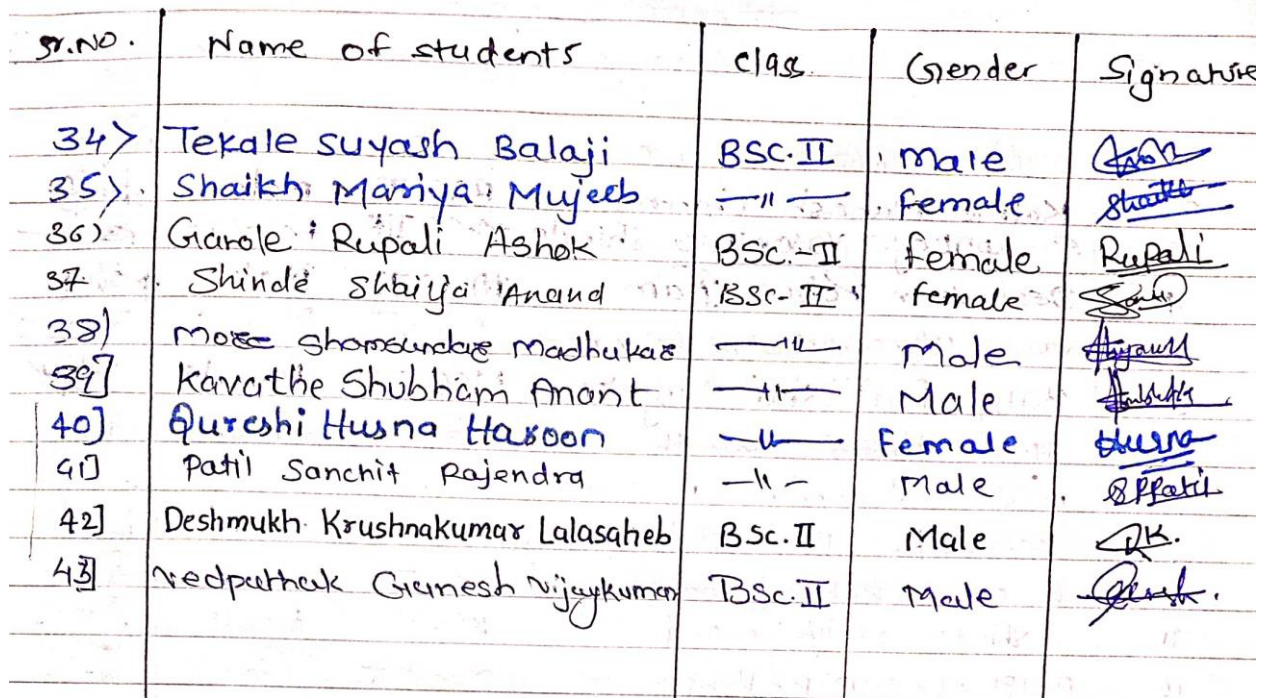 Sr.No. Name of students Class Gender Signature
34) Tekale Suyash Balaji BSC.II Male
35) Shaikh Mariya Mujeeb —11— Female Shaikh
36) Garole Rupali Ashok BSC.-II female Rupali
37 Shinde Anand BSC-II female
38) More Shamsundar Madhukar —11— Male
39] Kavathe Shubham Anant —11— Male
40] Qureshi Husna Haroon —11— Female Husna
41] Patil Sanchit Rajendra —11— Male SRPatil
42] Deshmukh Krushnakumar Lalasaheb B.Sc.II Male DK.
43] Vedpathak Ganesh Vijaykumar BSc.II Male